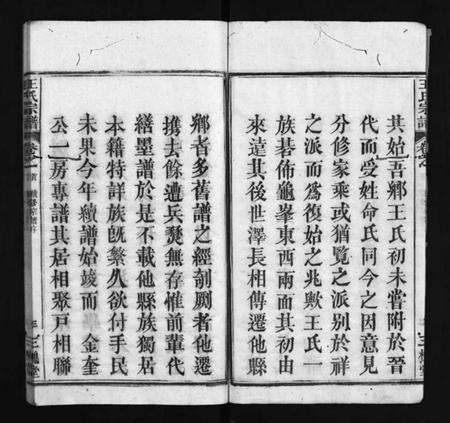 王氏宗譜
卷之
其始吾鄉王氏初未嘗附於晉
代而受姓命氏同今之因意見
分修家乘或猶覽之派別於祥
之派而為復始之兆歟王氏一
族碁佈龜峯東西兩面其初由
來遠其後世澤長相傳遷他縣
鄉者多舊譜之經剞劂者他遷
攜去餘遭兵燹無存惟前輩代
繕墨譜於是不載他縣族獨居
本籍特詳族旣繁久欲付手民
未果今年續譜始竣而 金奎
公一房專譜其居相聚戶相聯
王氏宗譜
卷之
三
三槐堂